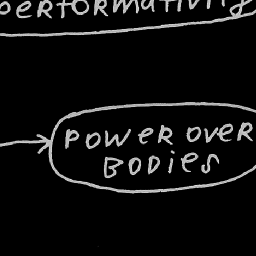 performativity
POWER OVER
BODIES